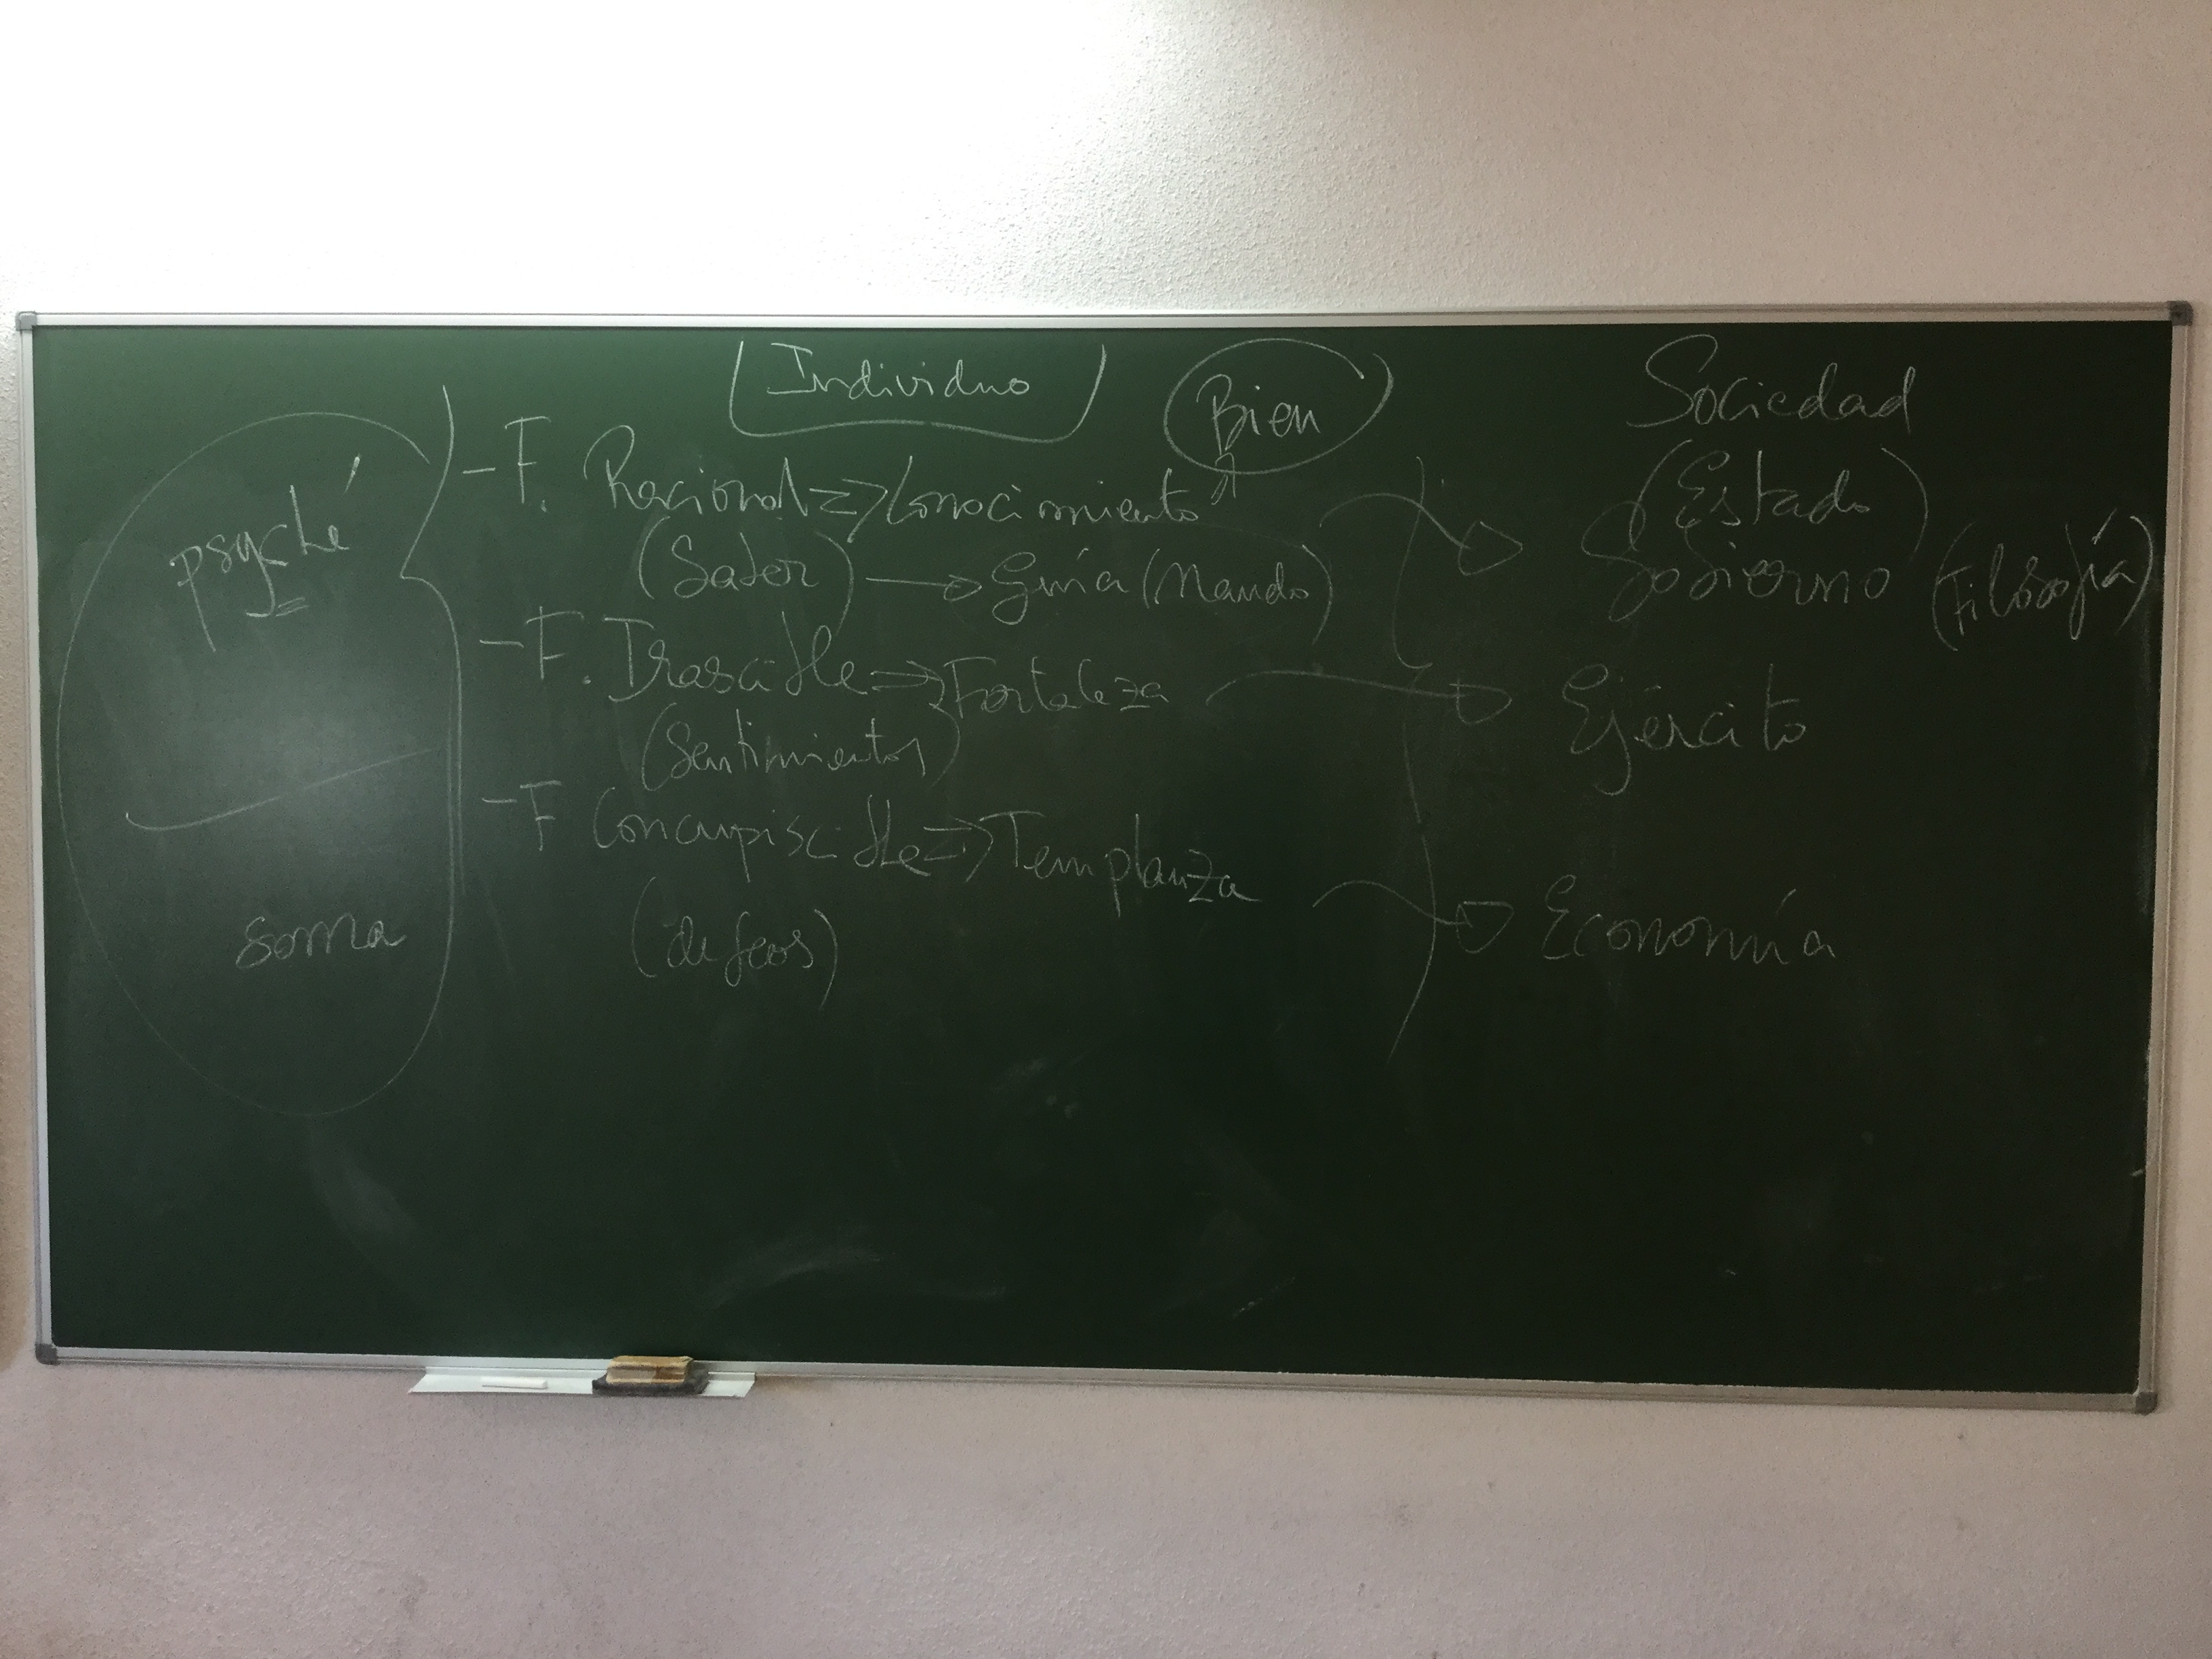 Individuo
Bien
Sociedad
(Estado)
psyché
- F. Racional => Conocimiento
(Saber) → Guía (Mando)
Gobierno (Filosofía)
- F. Irascible => Fortaleza
(Sentimientos)
Ejército
- F Concupiscible => Templanza
(deseos)
soma
Economía